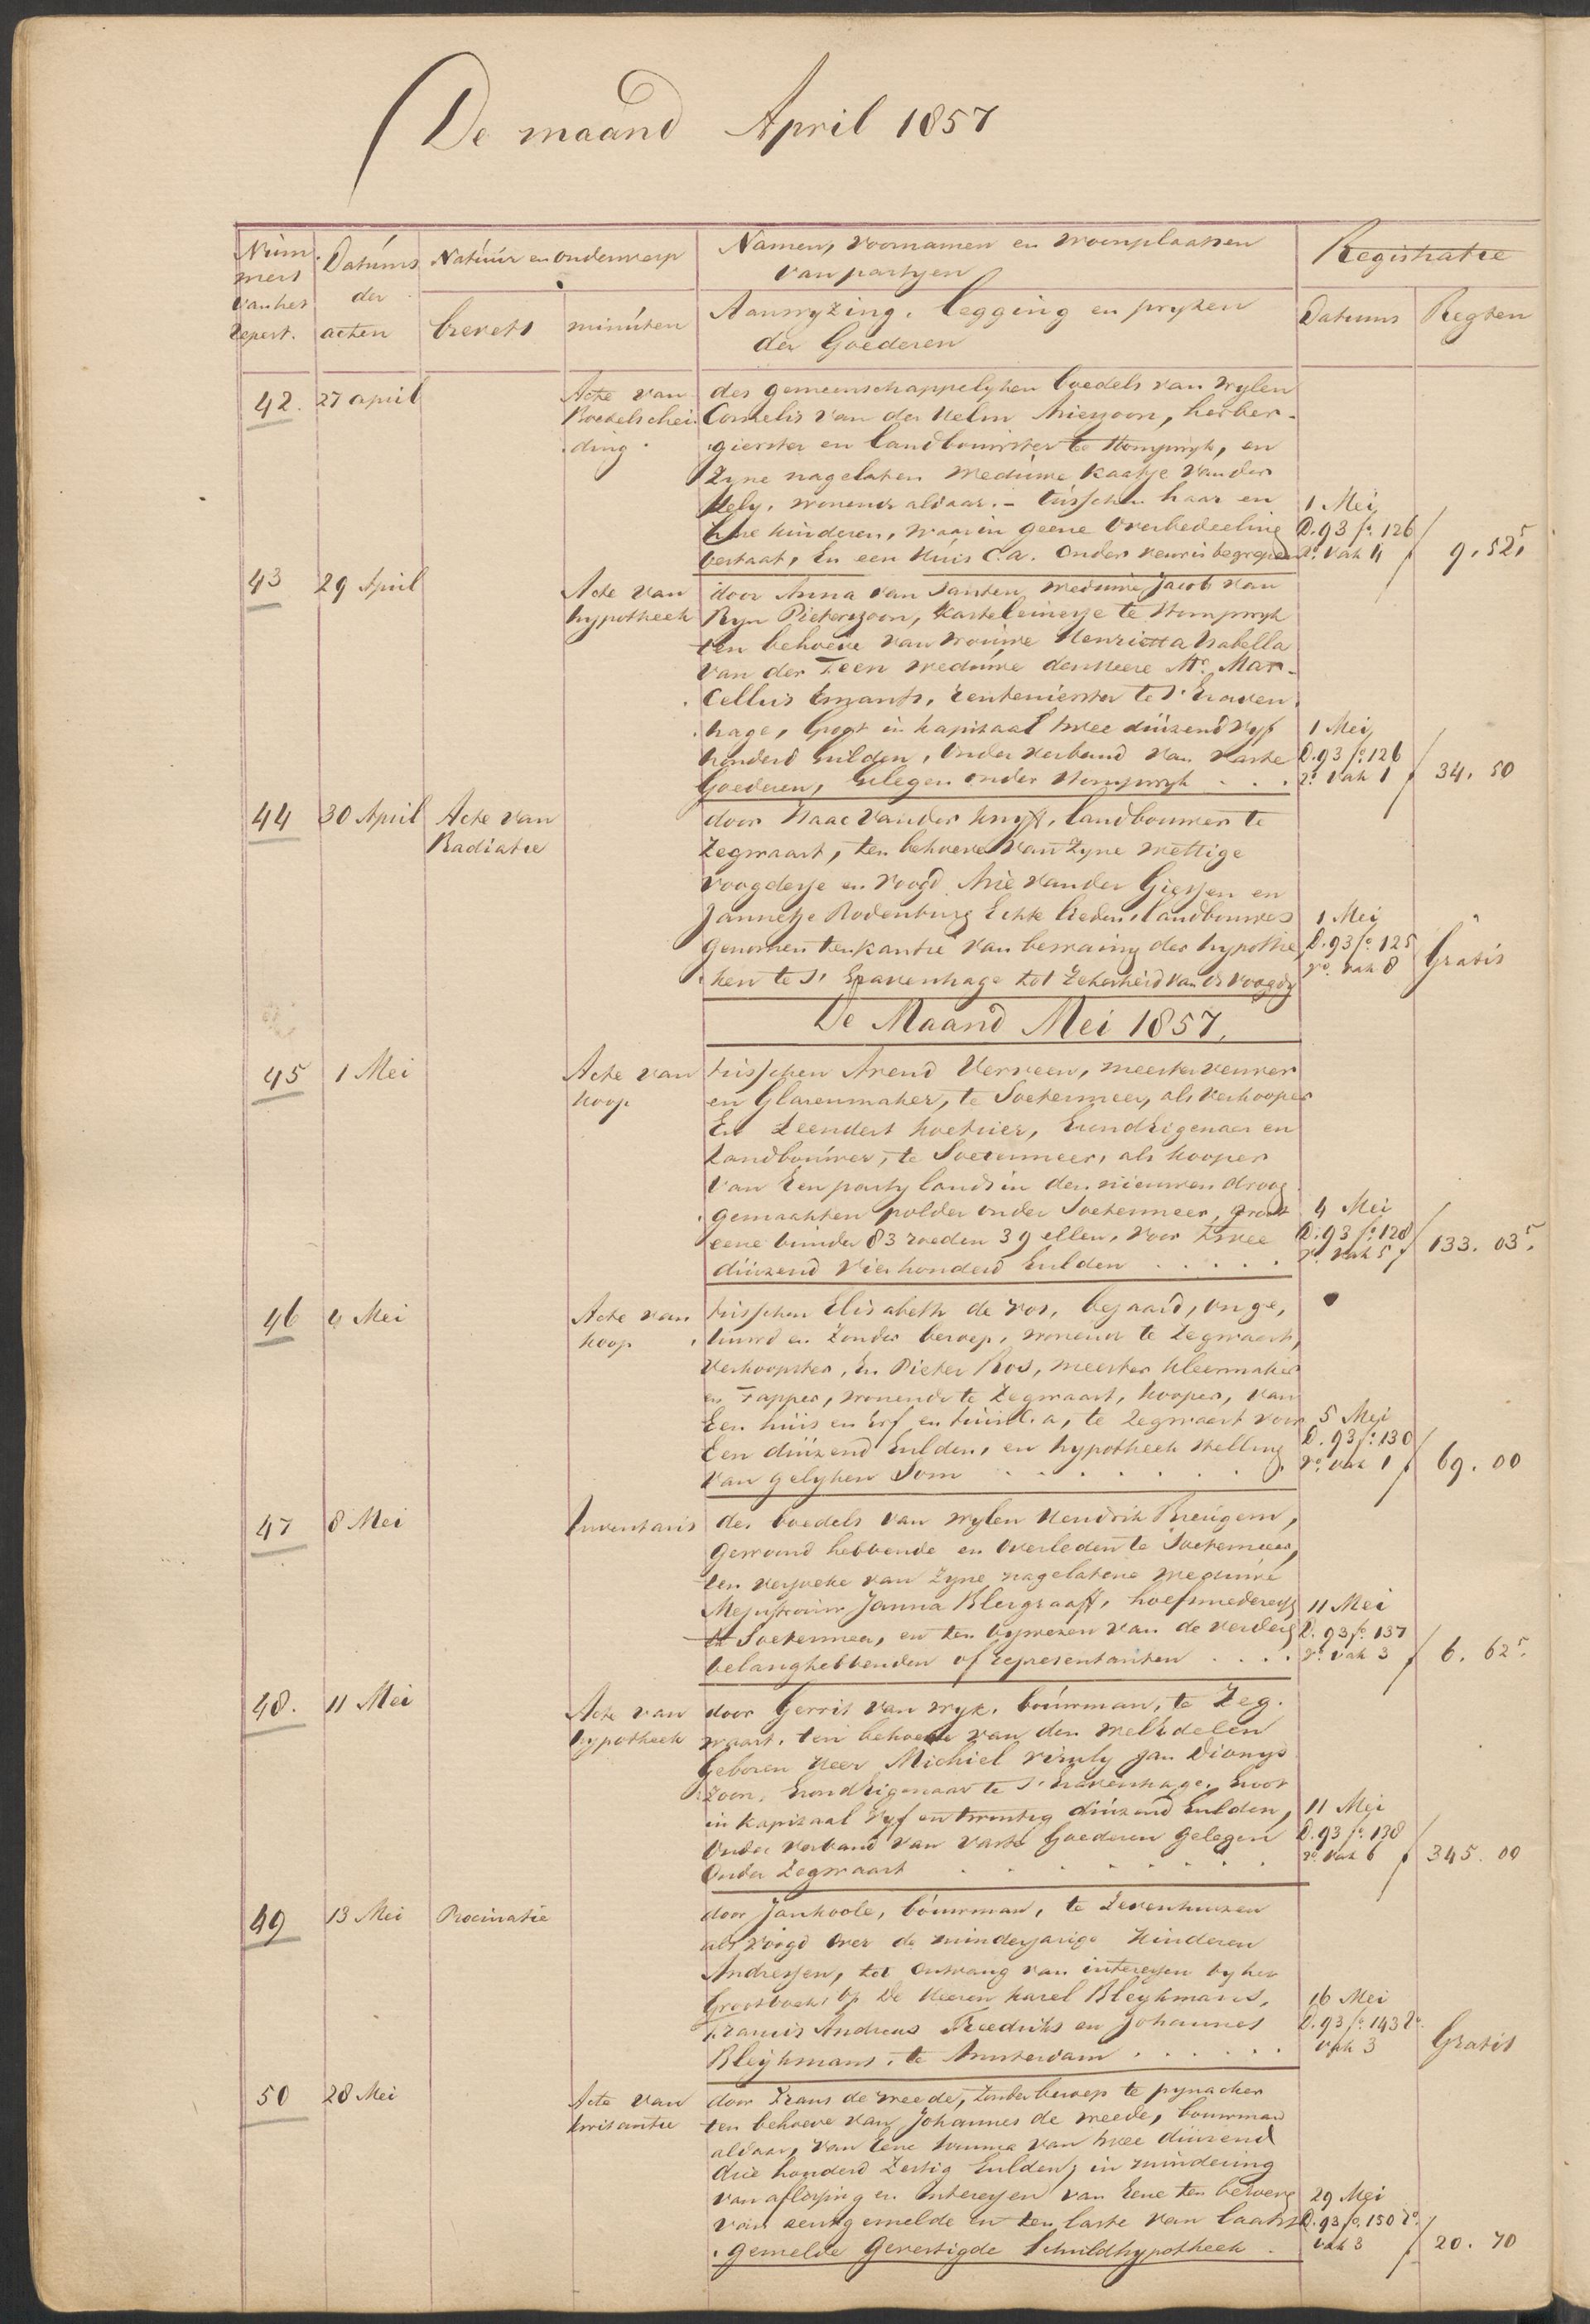 De maand April 1857
Num
mers
van het
repert.
Datums
der
acten
Natuur en onderwerp
brevets
minuten
Namen, voornamen en woonplaatsen
van partyen
Aanwyzing, legging en pryzen
der Goederen
Registratie
Datums
Regten
42. 27 april
Acte van
Boedelschei
ding
des gemeenschappelyken boedels van wylen
Cornelis van der Arieszoon, herber-
gierster en landbouwster te Stompwyk, en
Zyne nagelaten weduwe Kaatje van der
wonende aldaar. - tusschen haar en
hare kinderen, waarin geene Overbedeeling
bestaat, En een Huis C.a. Onder begrepen
1 Mei
D. 93 fo. 126
ro. Vak 4
9.52⁵
43 29 April
Acte van
hypotheek
door Anna van Santen, weduwe Jacob van
Ryn Pieterszoon, Kasteleinesse te Stompwyk
ten behoeve van vrouwe Henrietta Isabella
van der weduwe den Heere Mr. Mar-
cellus Emants, rentenierster te s' Graven
hage, Groot in kapitaal twee duizend vyf
honderd Gulden, Onder verband van vaste
Goederen, Gelegen onder Stompwyk . . .
1 Mei
D. 93 fo. 126
ro. Vak 1
34. 50
44 30 April Acte van
Radiatie
door Isaac van der Knyff, landbouwer te
Zegwaart, ten behoeve van Zyne wettige
voogdesse en voogd Arie van der Giessen en
Jannetje Rodenburg Echte lieden, landbouwers
genomen ten kantore van bewaring der hypothe
ken te s' Gravenhage tot Zekerheid van de voogdy
1 Mei
D. 93 fo. 125
vo. vak 8
Gratis
De Maand Mei 1857.
45 1 Mei
Acte van
koop
tusschen Arend Verveen, meester verwer
en Glazenmaker, te Soetermeer, als verkooper
En Leendert Grondeigenaar en
Landbouwer, te Soetermeer, als kooper
van Een party lands in den nieuwen droog
gemaakten polder onder Soetermeer, groot
eene bunder 83 roeden 39 ellen, voor twee
duizend vierhonderd Gulden . . . . .
4 Mei
D. 93 fo. 128
vo. vak 5
133. 03⁵
46 4 Mei
Acte van
koop
tusschen Elisabeth de Vos, bejaard, onge,
huwd en Zonder beroep, wonende te Zegwaart,
verkoopster, En Pieter Bos, meester kleermaker
en Tapper, wonende te Zegwaart, kooper, van
Een huis en Erf en tuin C.a, te Zegwaart voor
Een duizend Gulden, en hypotheek stelling
van gelyken Som . . . . . .
5 Mei
D. 93 fo. 130
ro. vak 1
69. 00
47 8 Mei
Inventaris
des boedels van wylen Hendrik
Gewoond hebbende en Overleden te Soetermeer,
ten verzoeke van Zyne nagelatene weduwe
Mejufvrouw Janna hoefsmederesse
te Soetermeer, en ten bywezen van de verdere
belanghebbenden of representanten . . . .
11 Mei
D. 93 fo. 137
ro. vak 3
6. 62⁵
48. 11 Mei
Acte van
hypotheek
door Gerrit van Wyk, bouwman, te Zeg.
waart, ten behoeve van den wel Edelen
Geboren Heer Michiel Jan Dionys
Zoon, Grond Eigenaar te s' Gravenhage, Groot
in kapitaal vyf en twintig duizend Gulden,
Onder verband van vaste Goederen gelegen
Onder Zegwaart . . . . . . .
11 Mei
D. 93 fo. 138
ro. Vak 6
345. 00
49 13 Mei Procuratie
door Jan Koole, bouwman, te Zevenhuizen
als Voogd Over de minderjarige Kinderen
Andriessen, tot Ontvang van interessen by het
Grootboek, Op De Heeren Karel Bleykmans,
Francis Andreas Fredriks en Johannes
Bleykmans, te Amsterdam . . . . . .
16 Mei
D. 93 fo. 143 vo.
vak 3
Gratis
50 28 Mei
Acte van
kwitantie
door Frans de Vreede, Zonder beroep te pynacker
ten behoeve van Johannes de vreede, bouwman
aldaar, van Eene Somma van twee duizend
drie honderd Zestig Gulden, in mindering
van aflossing en Interessen van Eene ten behoeve
van eerstgemelde en ten laste van laatst
gemelde Gevestigde Schuldhypotheek .
29 Mei
D. 93 fo. 150 vo.
vak 3
20. 70